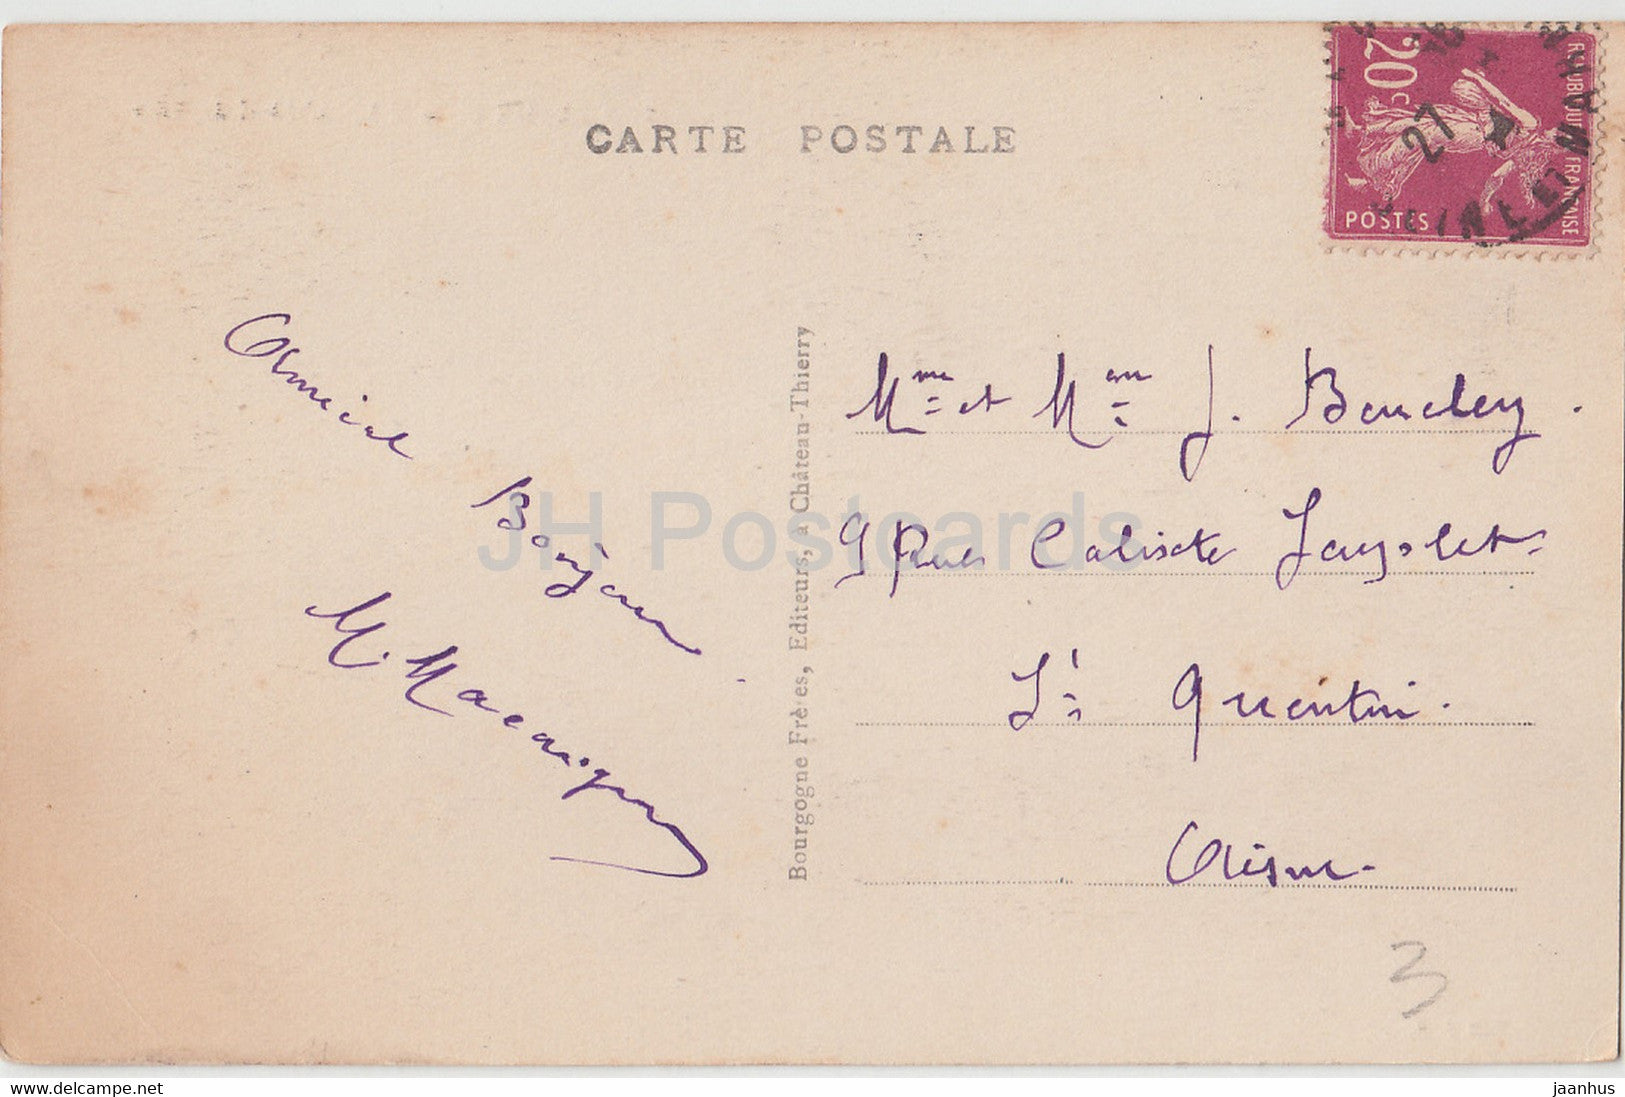 CARTE POSTALE
20c
REPUBLIQUE FRANÇAISE
POSTES
27
Amical
Bonjour
M.
Bourgogne Frères, Editeurs, a Château-Thierry
Mme et J.
9 Rue Calixte
St Quentin.
Aisne.
3
JH Postcards
www.delcampe.net
jaanhus